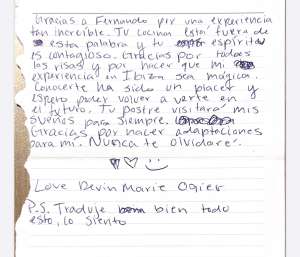 Gracias a Fernando por una experiencia
tan increíble. Tu cocina está fuera de
esta palabra y tu espíritu
es contagioso. Gracias por todas
las risas y por hacer que mi
experiencia en Ibiza sea mágica.
Conocerte ha sido un placer y
espero poder volver a verte en
el futuro. Tu postre visitará mis
sueños para siempre.
Gracias por hacer adaptaciones
para mí. Nunca te olvidaré.
Love Devin Marie Ogier
P.S. Traduje bien todo
esto, lo siento